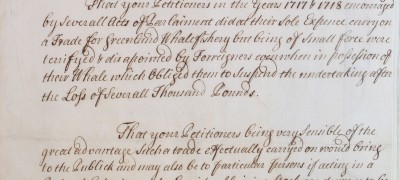 That your Petitioners in the Years 1717 & 1718 encouraged
by Severall Acts of Parlaiment did at their Sole Expence carry on
a Trade for Greenland Whalefishery but being of Small force were
terrifyed & disapointed by Foreigners even when in possession of
their Whale which obliged them to Suspend the undertaking after
the Loss of Severall Thousand Pounds.
That your Petitioners being very Sensible of the
great advantage Such a trade effectually carried on would bring
to the Publick and may also be to particular persons if acting in a